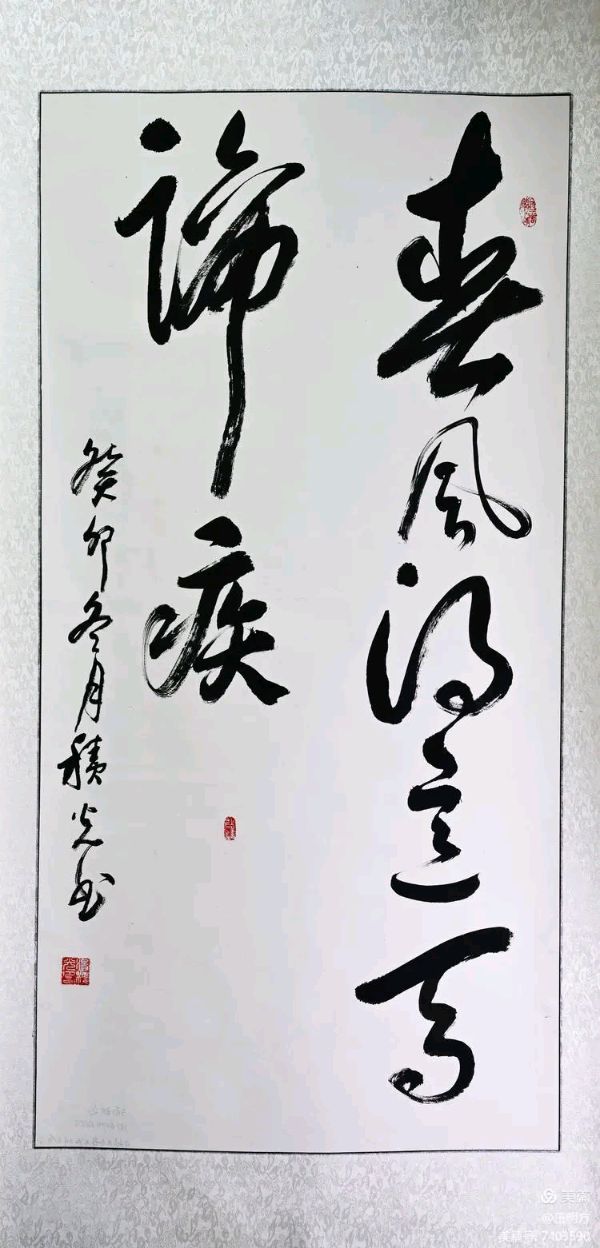 春风得意马
蹄疾
癸卯冬月積光书
美篇
美篇号:7403590